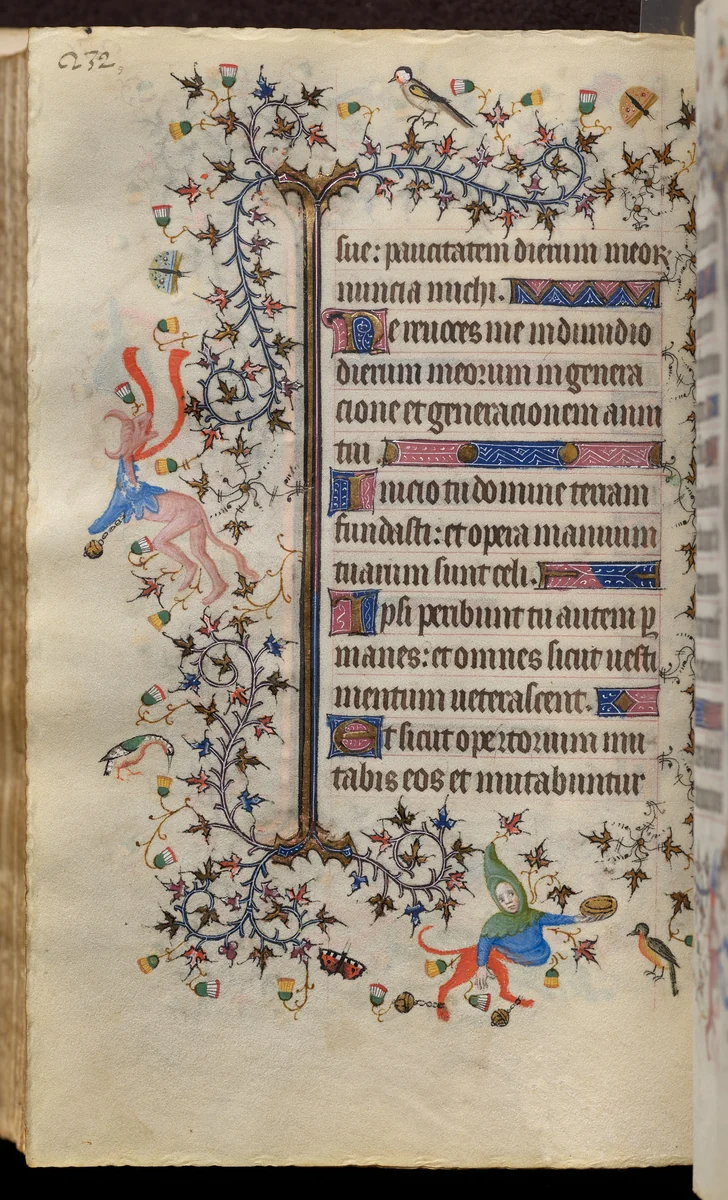 232
sue: paucitatem dierum meor
nuncia michi.
Ne reuoces me in dimidio
dierum meorum in genera
cione et generacionem anni
tui.
Inicio tu domine terram
fundasti: et opera manuum
tuarum sunt celi.
Ipsi peribunt tu autem p̄
manes: et omnes sicut uesti
mentum ueterascent.
Et sicut opertorium mu
tabis eos et mutabuntur